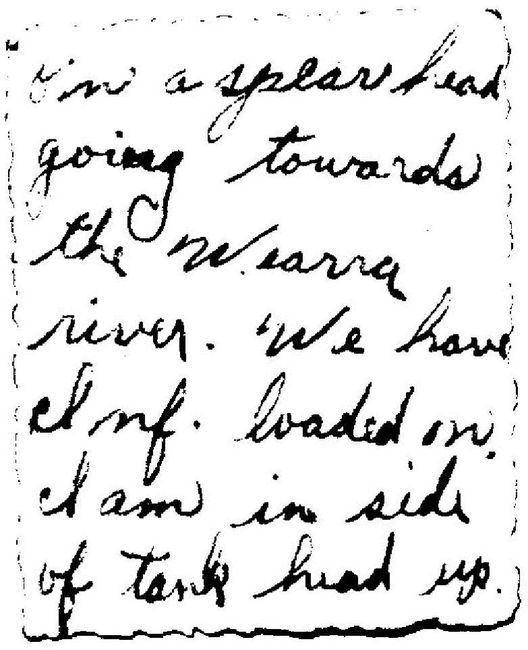 I'm a spearhead
going towards
the Wearra
river. We have
Inf. loaded on.
I am in side
of tank head up.